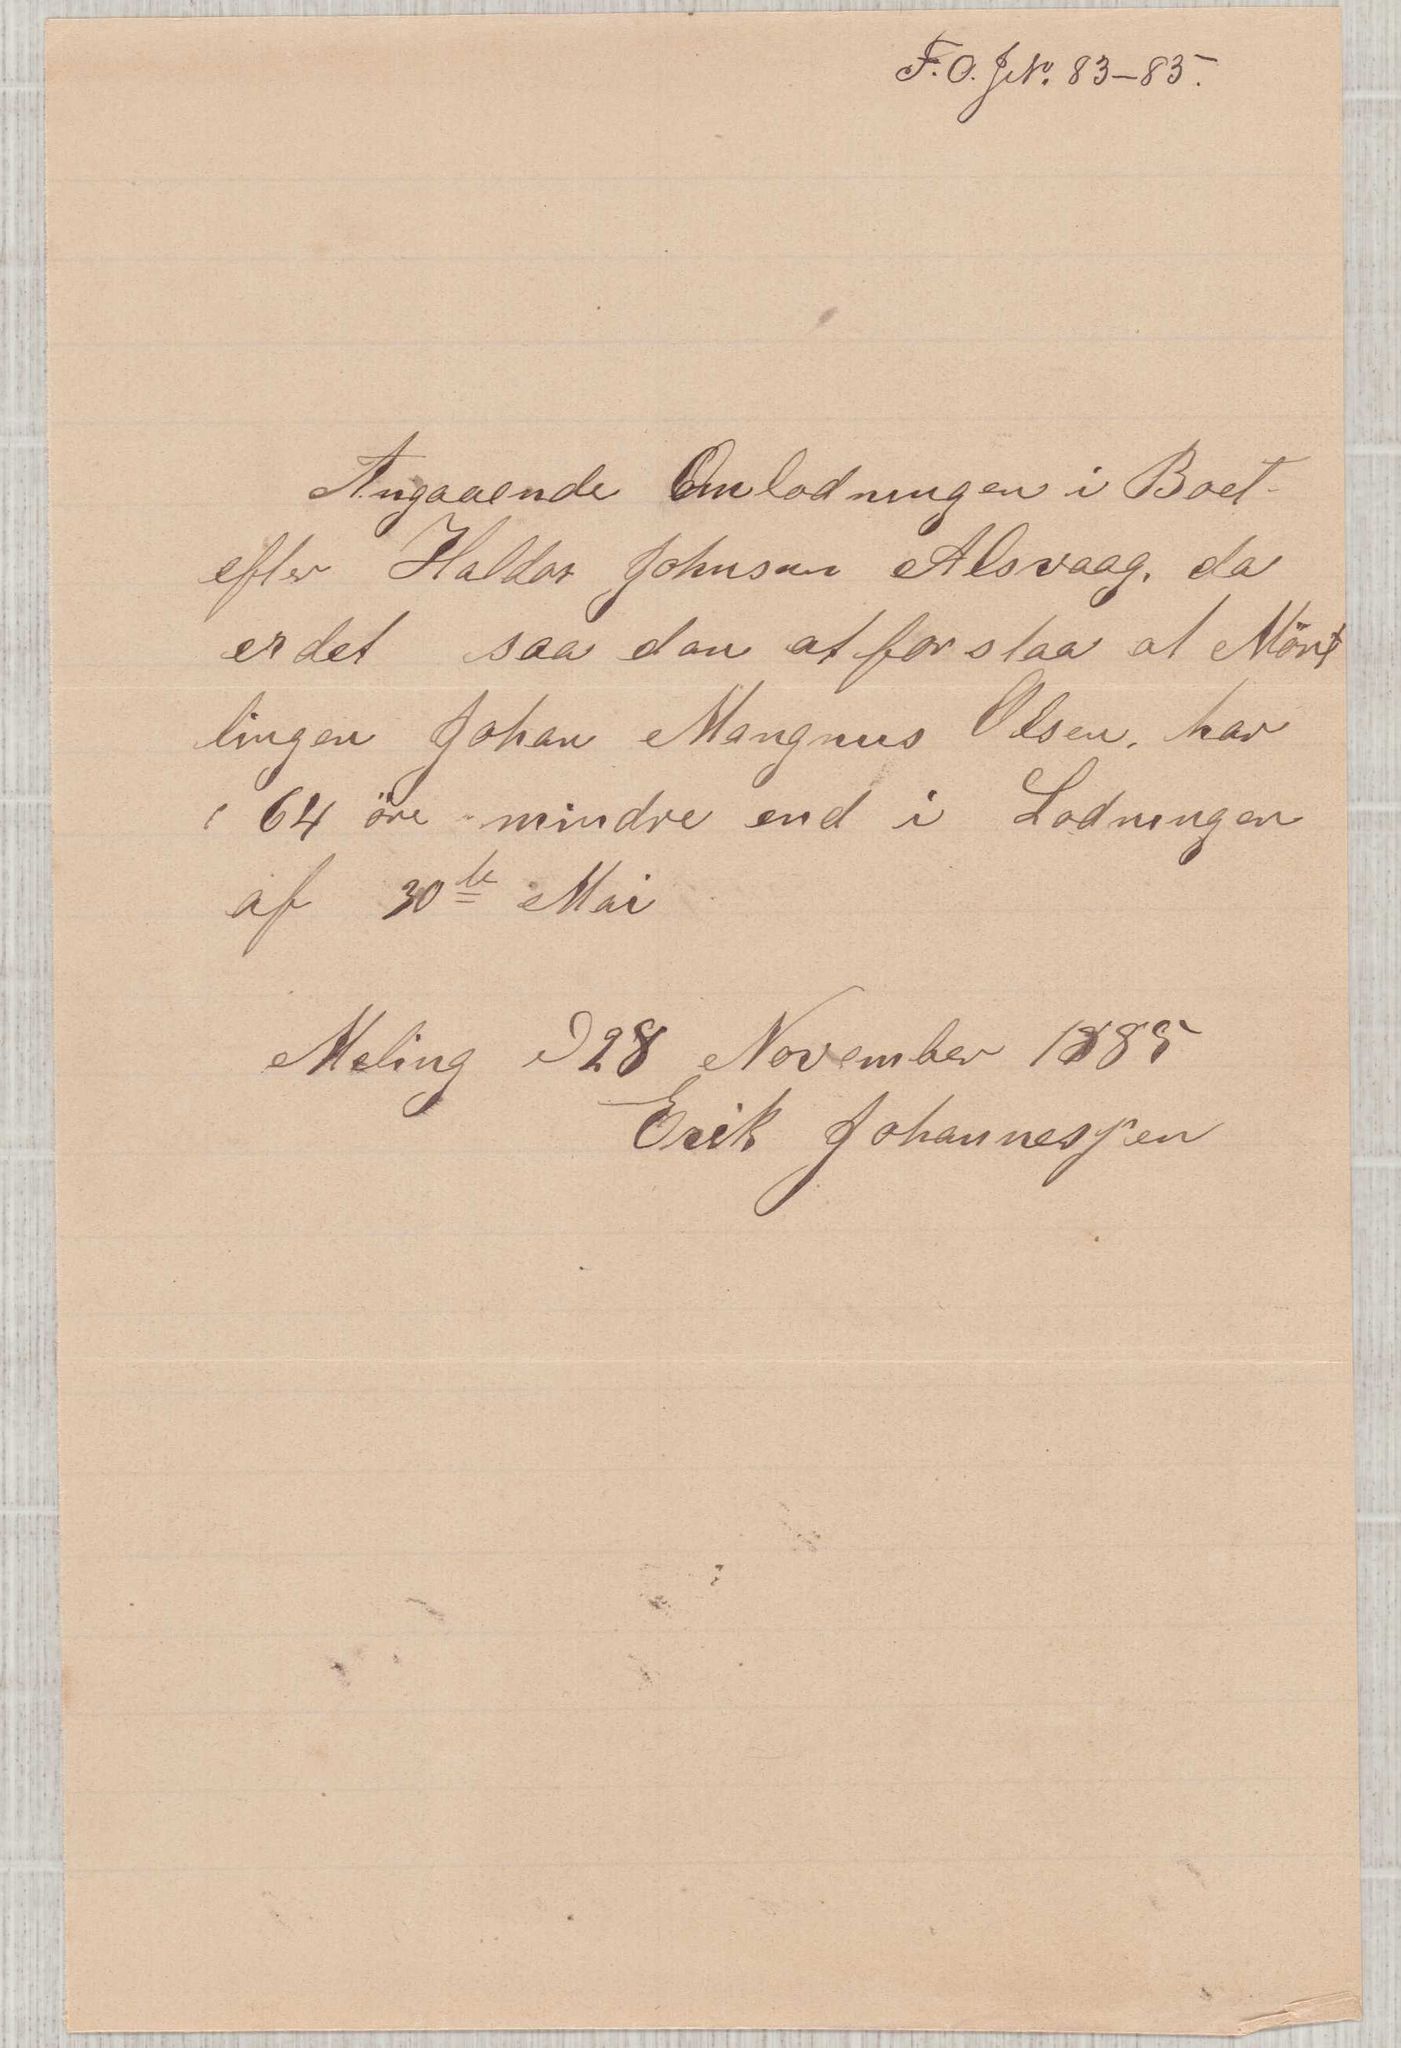 F. O. J.No. 83-85.
Angaaende Omlodningen i Boet
efter Haldor Johnsen Alsvaag, da
er det saa dan at for staa at Mönt
lingen Johan Mangnus Olsen, har
64 öre mindre end i Lodningen
af 30te Mai
Meling D 28 November 1885
Erik Johannessen